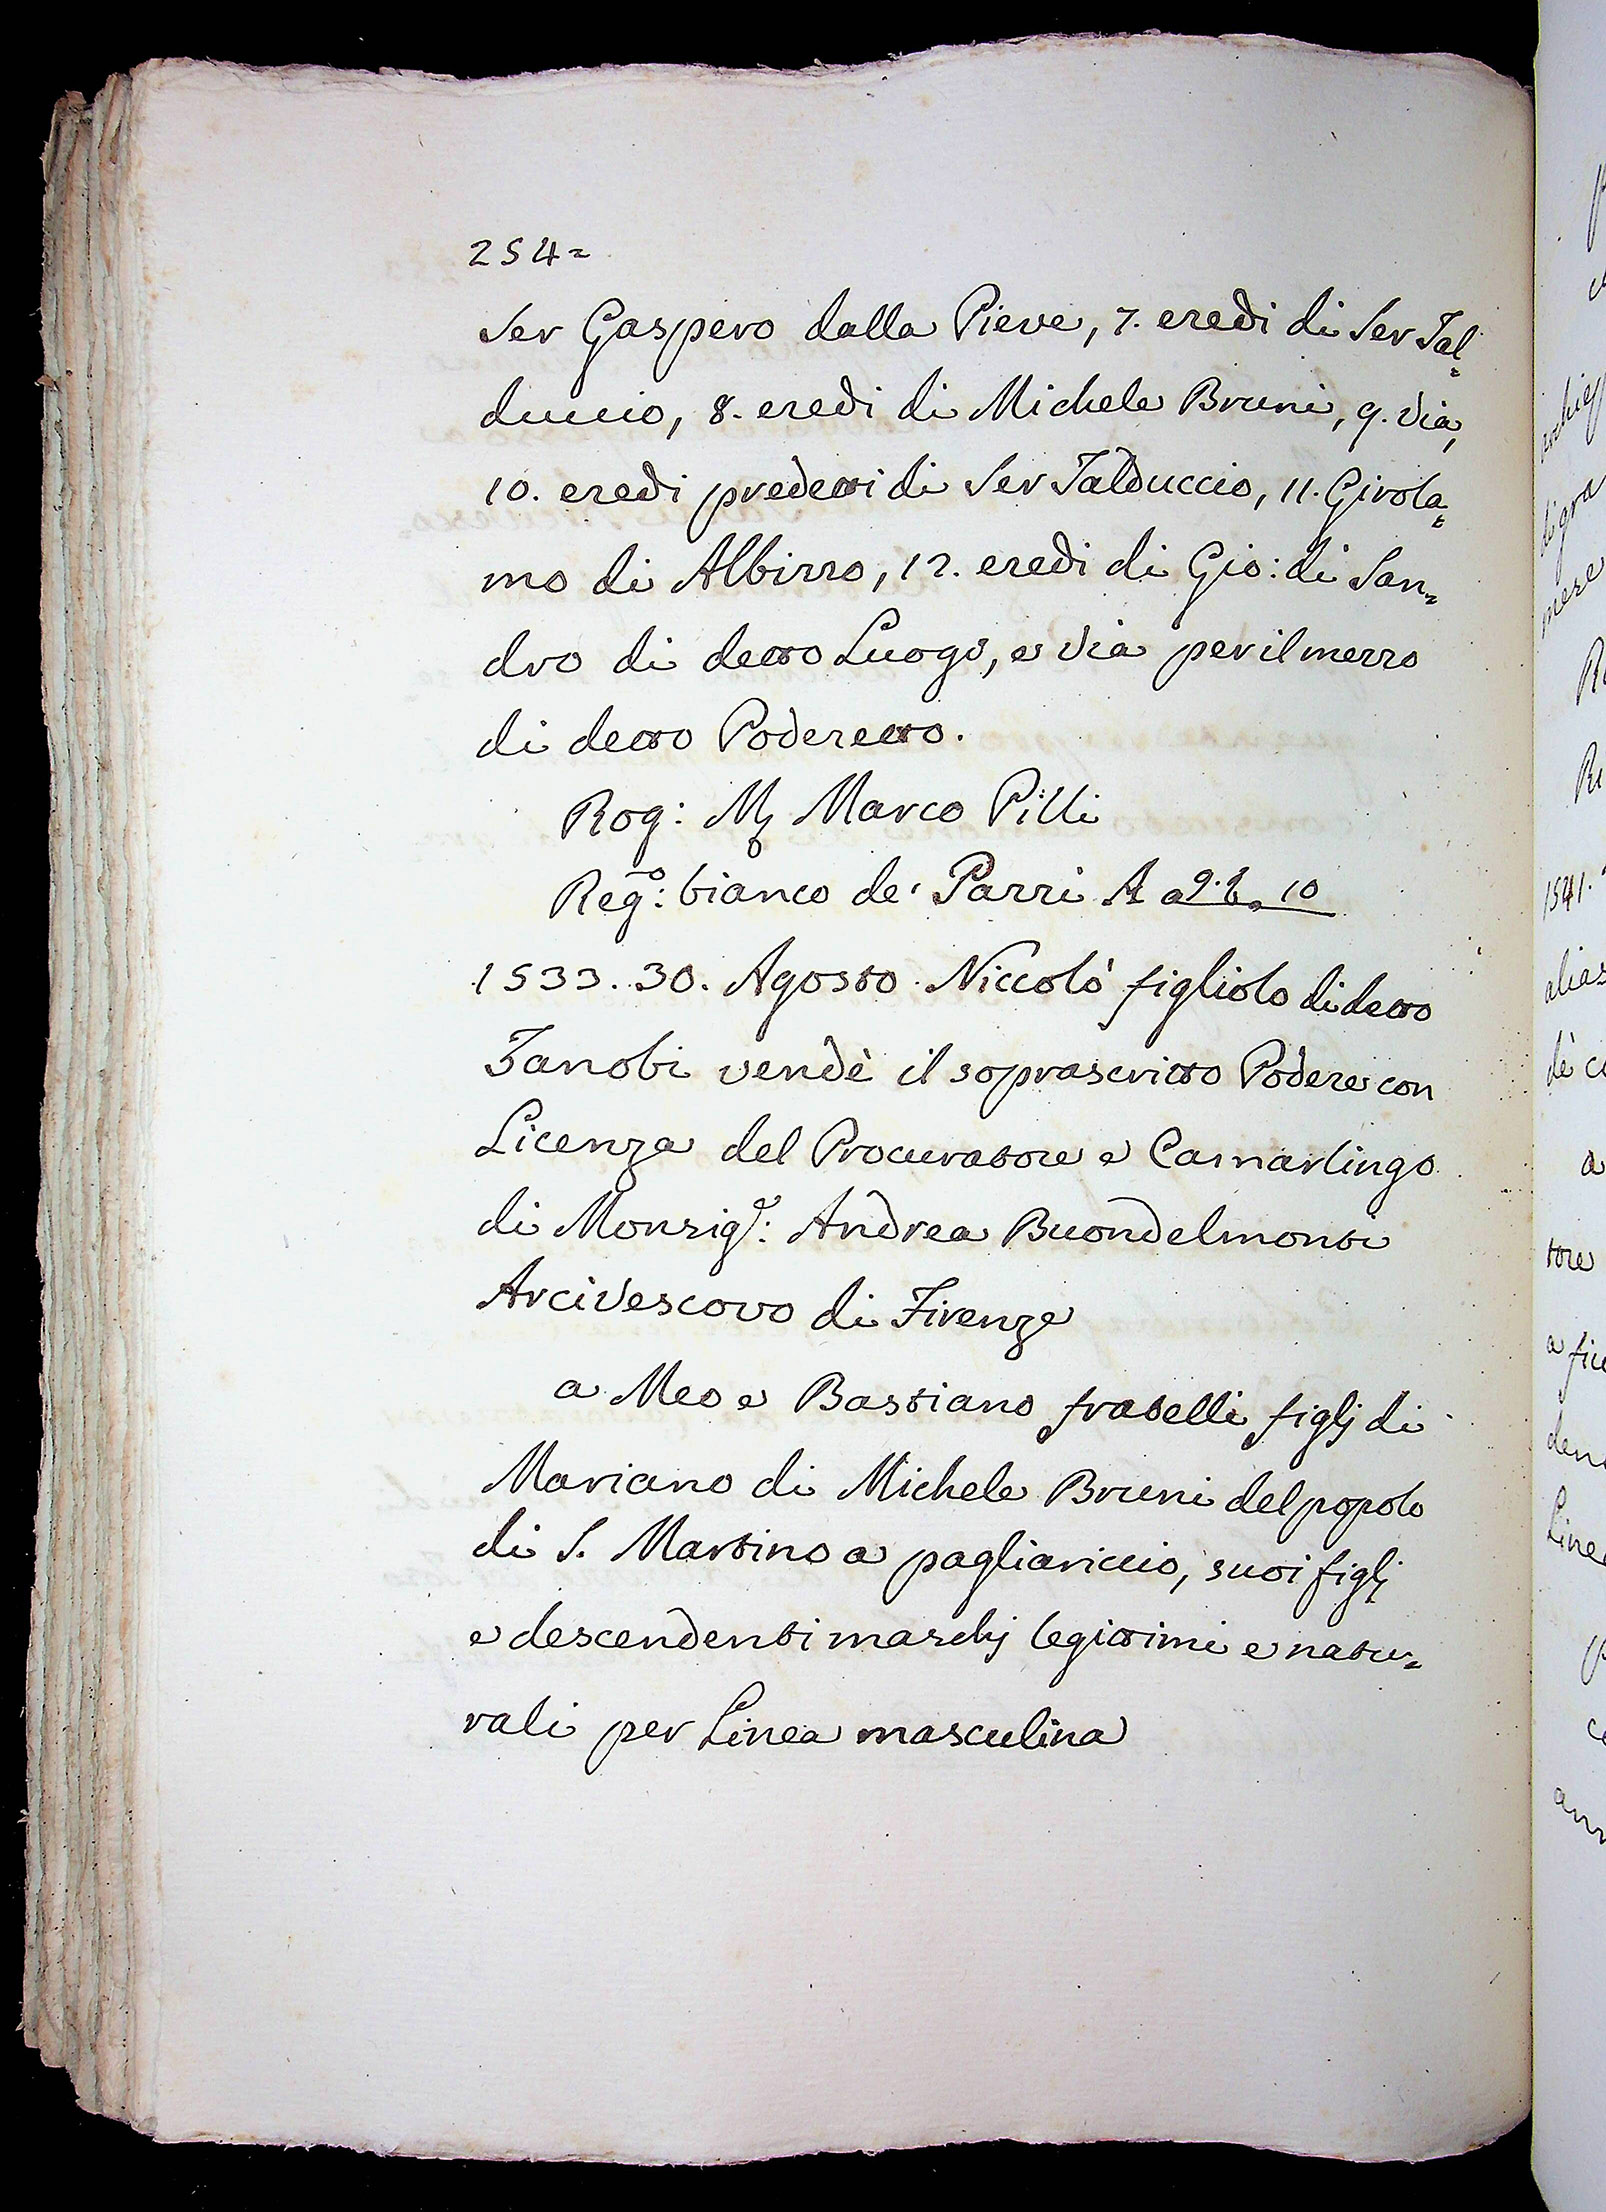 254=
Ser Gaspero dalla Pieve, 7. eredi di Ser Tal=
duccio, 8. eredi di Michele Bruni, 9. Via,
10. eredi predetti di Ser Talduccio, 11. Girola=
mo di Albizzo, 12. eredi di Gio: di San=
dro di detto Luogo, e Via per il mezzo
di detto Poderetto.
Rog: M Marco Pilli
Regº: bianco de' Pazzi A a 92. 10
1533. 30. Agosto. Niccolò figliolo di detto
Zanobi vendè il soprascritto Podere con
Licenza del Procuratore e Camarlingo
di Monsigr: Andrea Buondelmonti
Arcivescovo di Firenze
a Meo e Bastiano fratelli figlj di
Mariano di Michele Bruni del popolo
di S. Martino a pagliariccio, suoi figlj
e descendenti maschj legittimi e natu=
rali per Linea masculina
1541.
alias
dè
a
tore
a